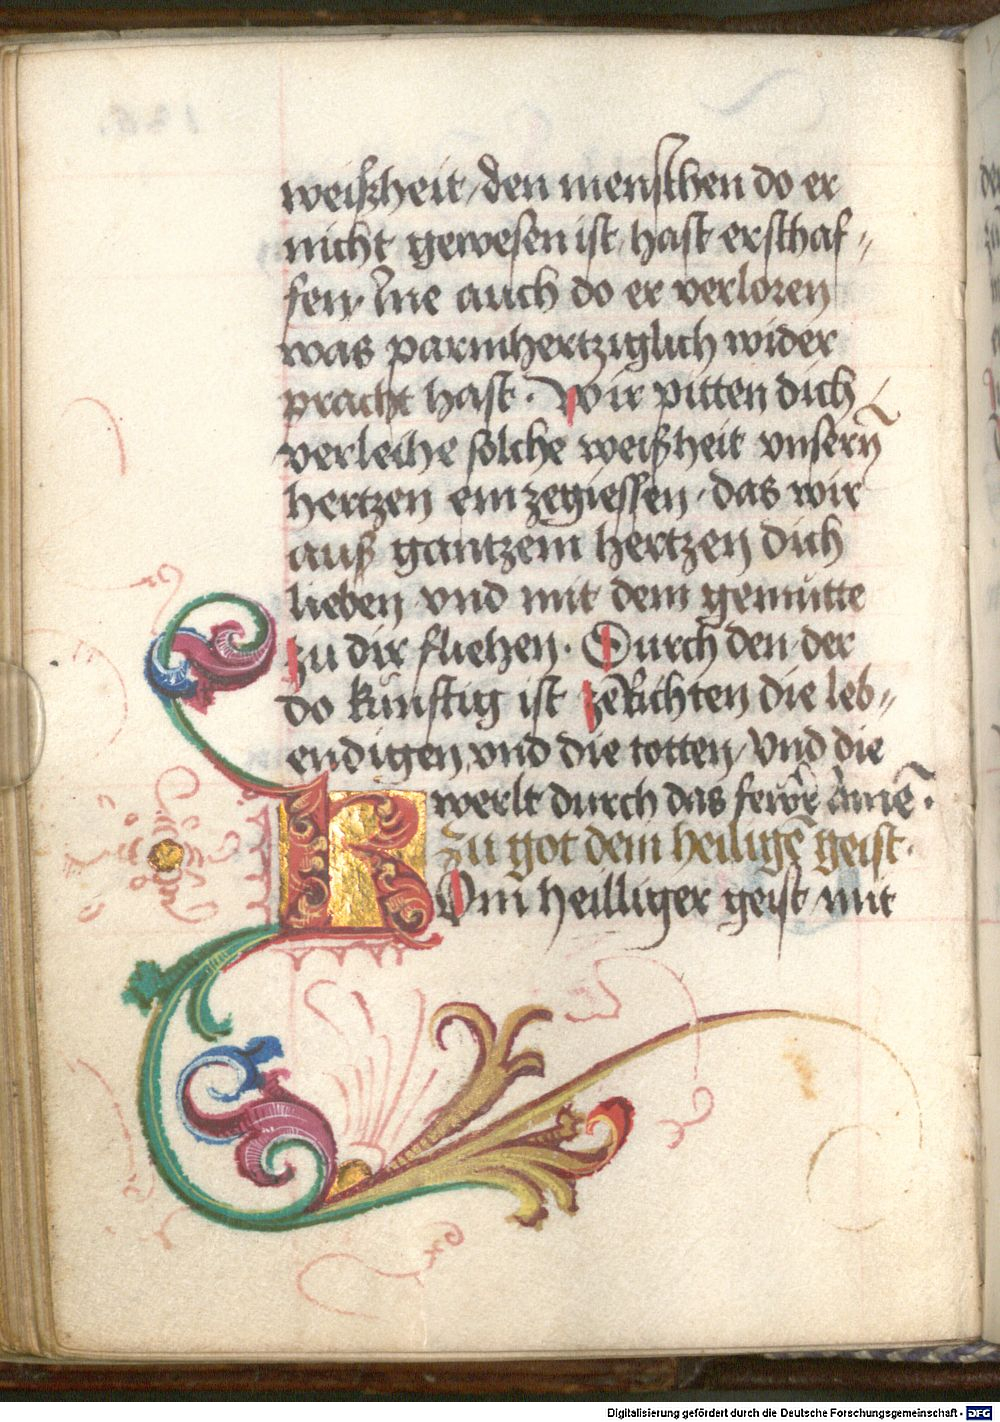 weißheit / den menschen do er
nicht gewesen ist / hast erschaf⸗
fen. Vnd auch do er verloren
was parmhertziglich wider
pracht hast. Wir pitten dich /
verleihe solche weißheit vnsern̄
hertzen ein zegiessen / das wir
auß gantzem hertzen dich
lieben vnd mit dem gemütte
zu dir fliehen. Durch den der
do künftig ist zerichten die leb⸗
endigen vnd die totten / vnd die
werlt durch das fewr̄ Amē.
Zu got dem heiligē geist.
Kom heilliger geist / mit
Digitalisierung gefördert durch die Deutsche Forschungsgemeinschaft - DFG